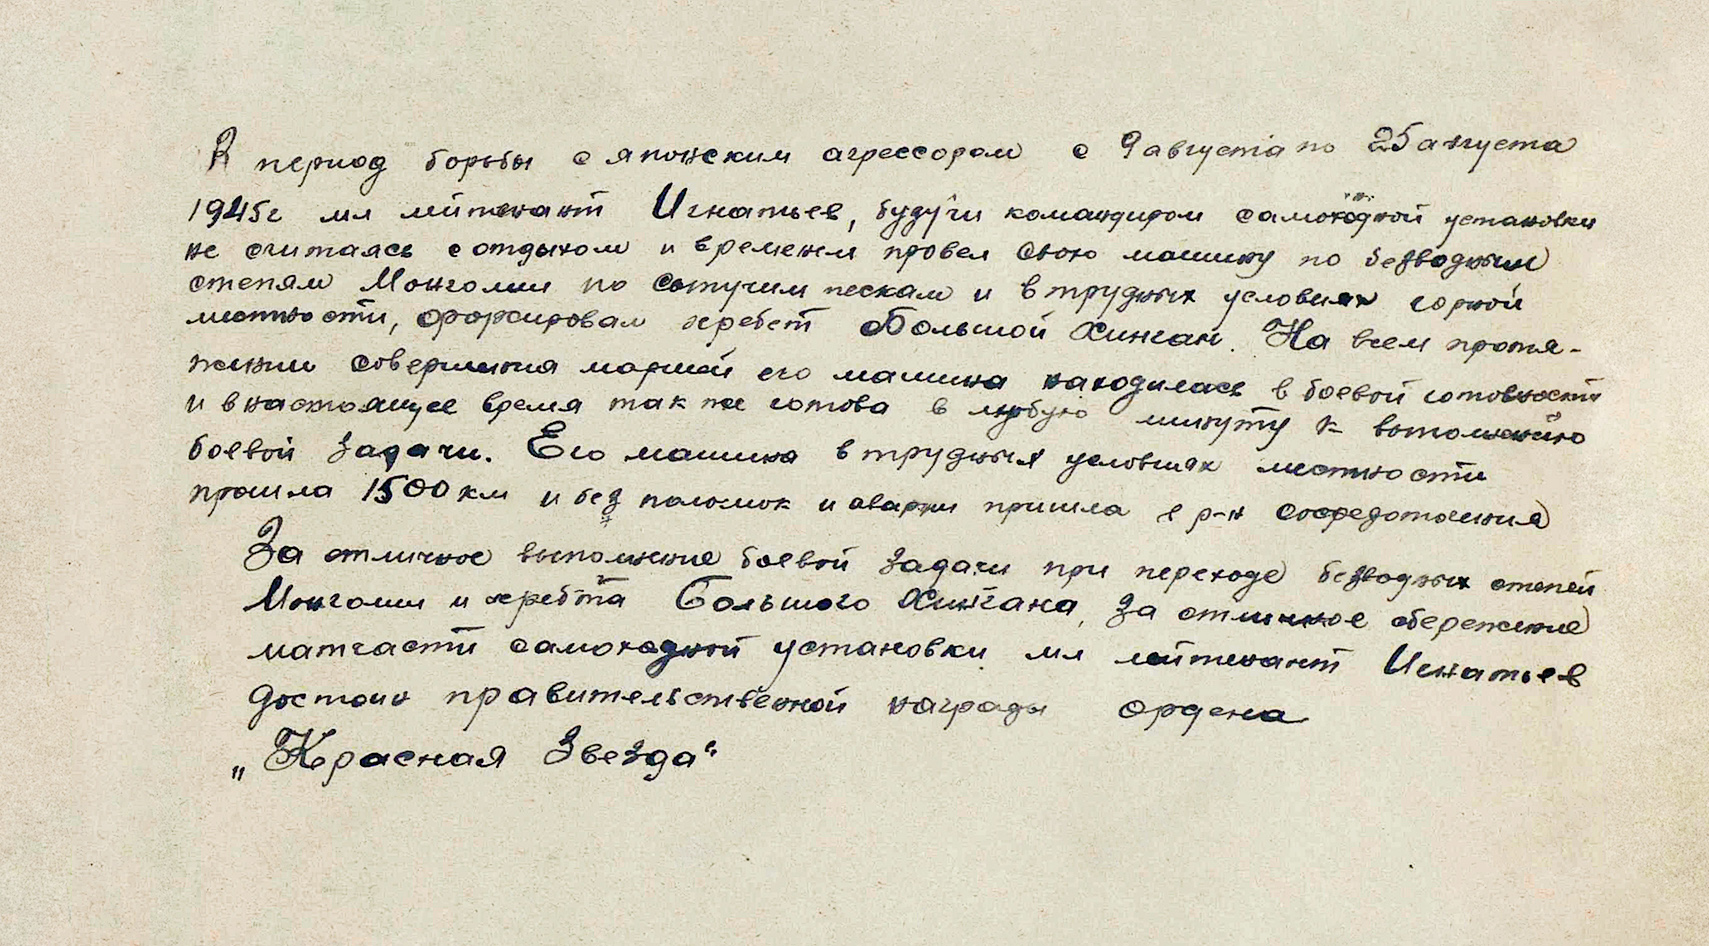 В период борьбы с японским агрессором с 9 августа по 25 августа
1945г мл лейтенант Игнатьев, будучи командиром самоходной установки
не считаясь с отдыхом и временем провел свою машину по безводным
степям Монголии по сыпучим пескам и в трудных условиях горной
местности, форсировал хребет Большой Хинган. На всем протя-
жении совершения маршей его машина находилась в боевой готовности
и в настоящее время так же готова в любую минуту к выполнению
боевой задачи. Его машина в трудных условиях местности
прошла 1500 км и без поломок и аварии пришла в р-н сосредоточения
За отличное выполнение боевой задачи при переходе безводных степей
Монголии и хребта Большого Хингана, за отличное сбережение
матчасти самоходной установки мл лейтенант Игнатьев
достоин правительственной награды ордена
„Красная Звезда“